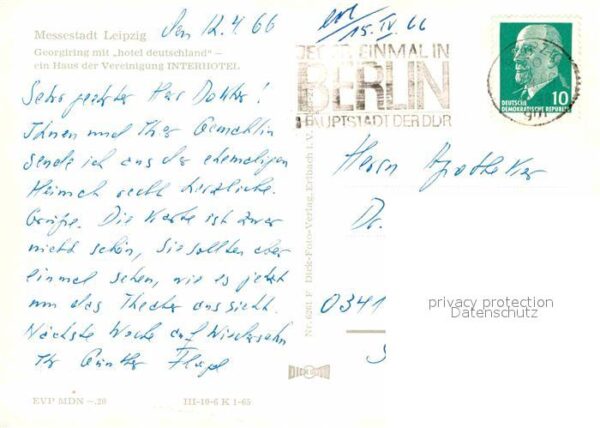 Messestadt Leipzig
Georgiring mit „hotel deutschland" –
ein Haus der Vereinigung INTERHOTEL
Den 12.4.66
Sehr geehrter Herr Doktor!
Ihnen und Ihrer Gemahlin
sende ich aus der ehemaligen
Heimat recht herzliche
Grüße. Die Karte ist zwar
nicht schön, Sie sollten aber
einmal sehen, wie es jetzt
um das Theater aussieht.
Nächste Woche auf Wiedersehn
Ihr Günther
EVP MDN –.20
III-10-6 K 1-65
Nr. 6261 F Dick-Foto-Verlag, Erlbach i. V.
15.IV.66
EINMAL IN
BERLIN
HAUPTSTADT DER DDR
DEUTSCHE
DEMOKRATISCHE REPUBLIK
10
Herrn Apotheker
Dr.
0341
privacy protection
Datenschutz
DICK